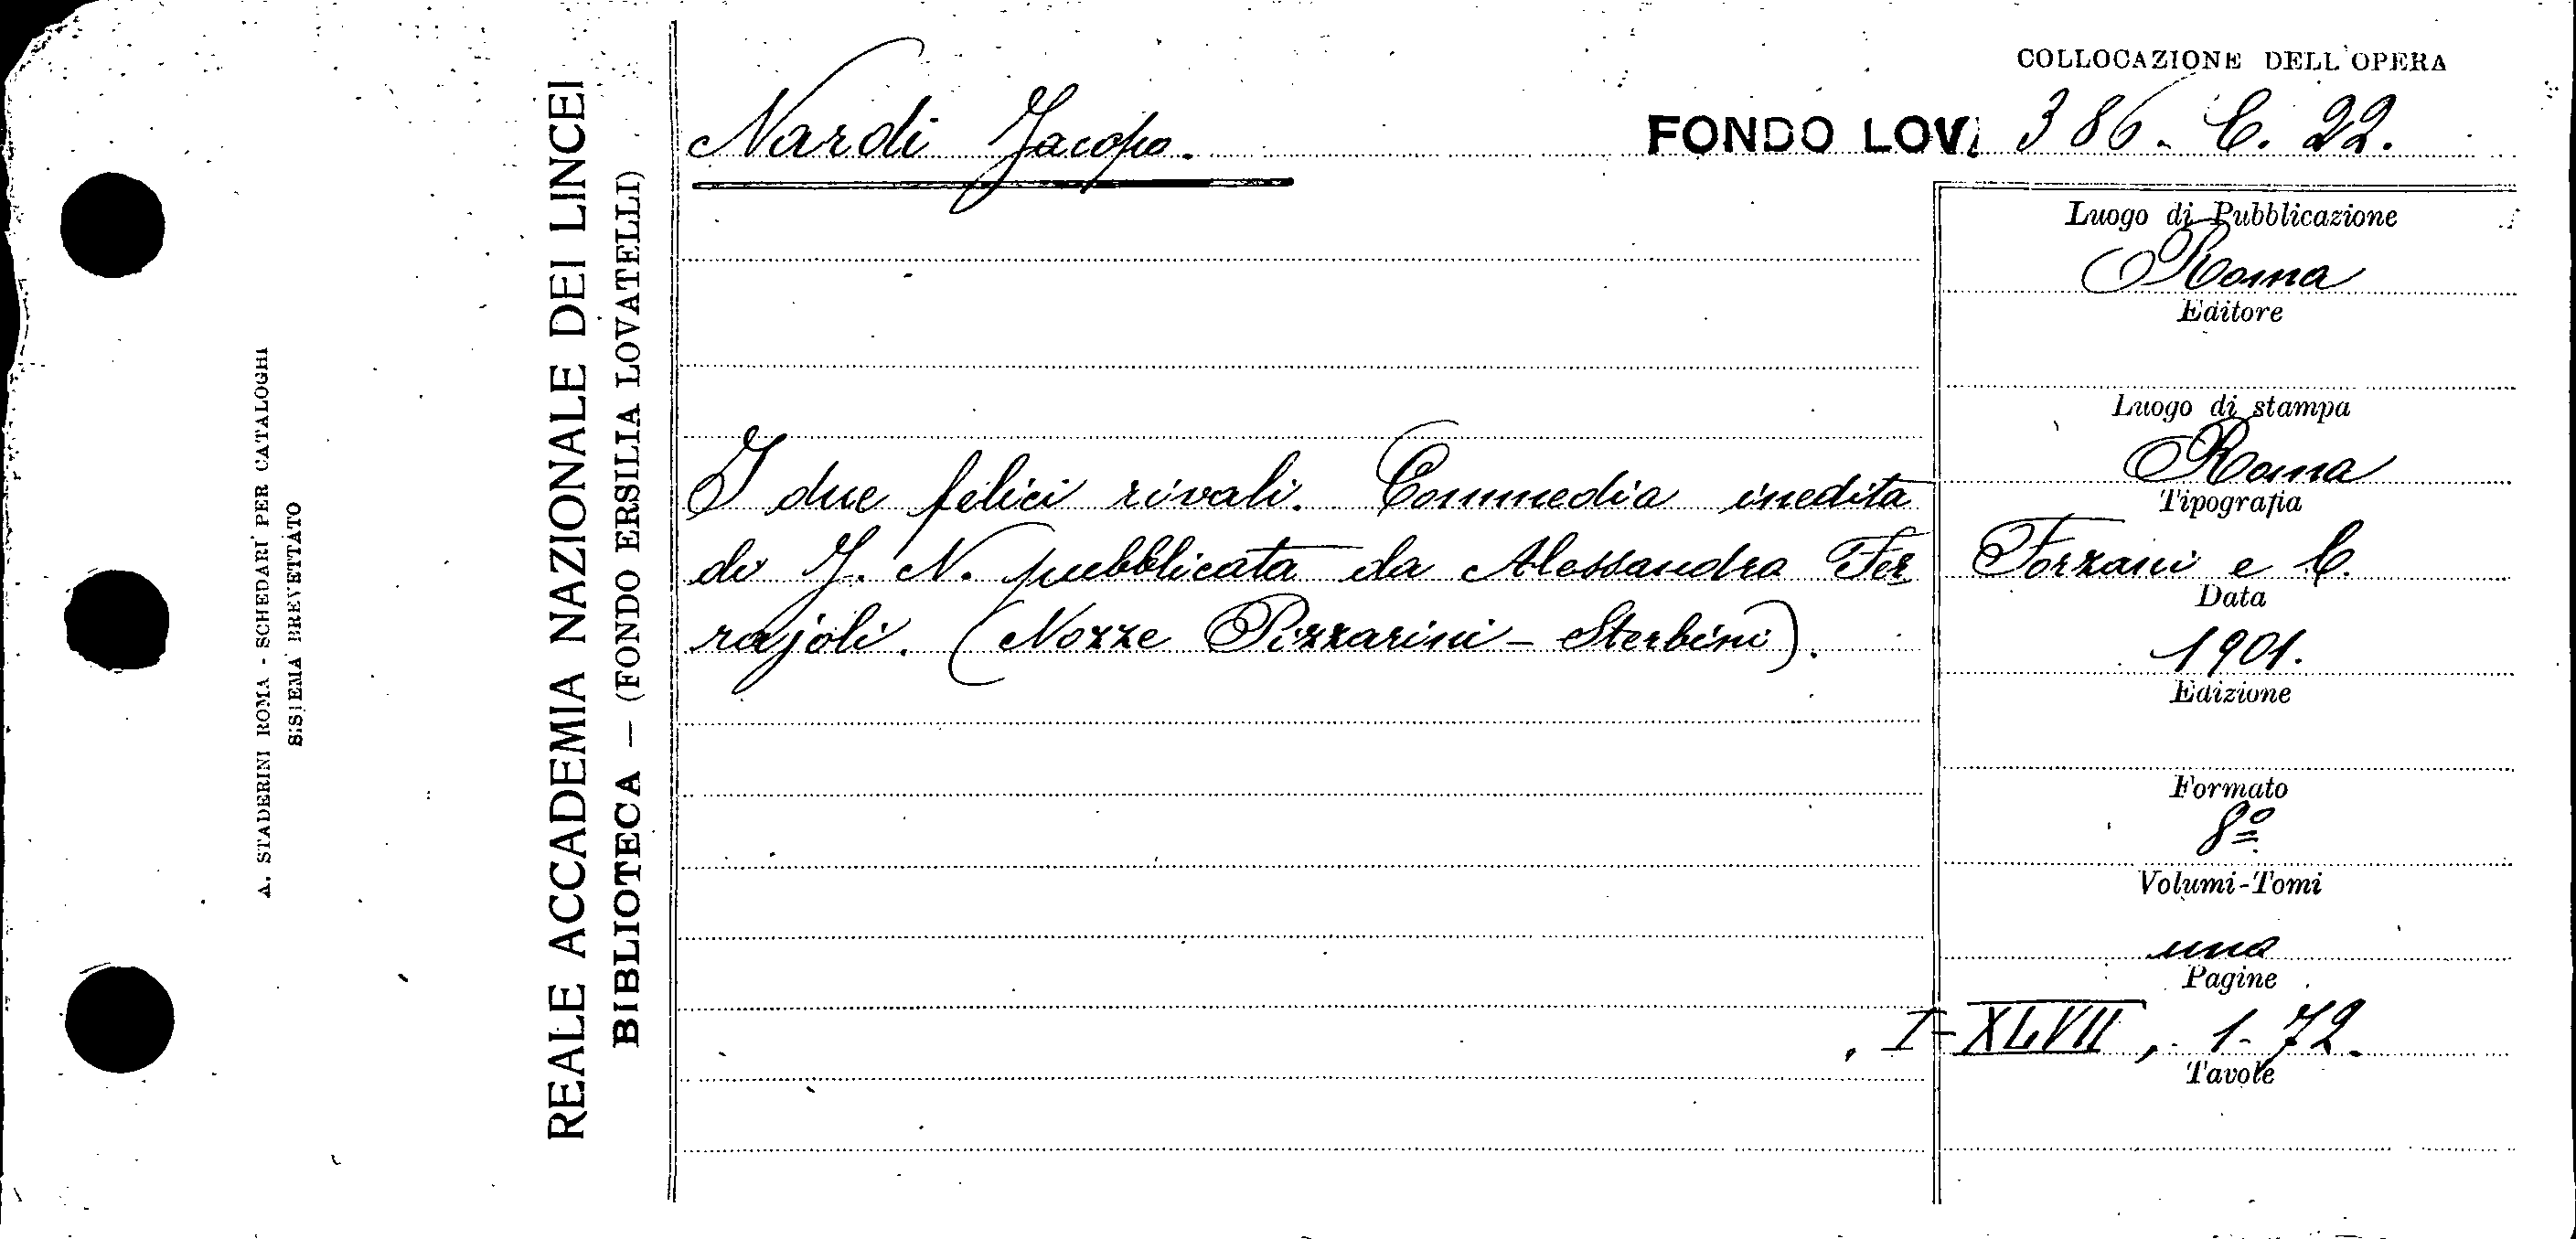 A. STADERINI ROMA - SCHEDARI PER CATALOGHI
SISTEMA BREVETTATO
REALE ACCADEMIA NAZIONALE DEI LINCEI
BIBLIOTECA — (FONDO ERSILIA LOVATELLI)
COLLOCAZIONE DELL'OPERA
Nardi Jacopo.
FONDO LOV. 386. C. 22.
I due felici rivali. Commedia inedita
di J. N. pubblicata da Alessandro Fer
rajoli. (Nozze Pizzarini - Sterbini).
Luogo di Pubblicazione
Roma
Editore
Luogo di stampa
Roma
Tipografia
Forzani e C.
Data
1901.
Edizione
Formato
8º
Volumi-Tomi
uno
Pagine
I-XLVII, 1-72.
Tavole